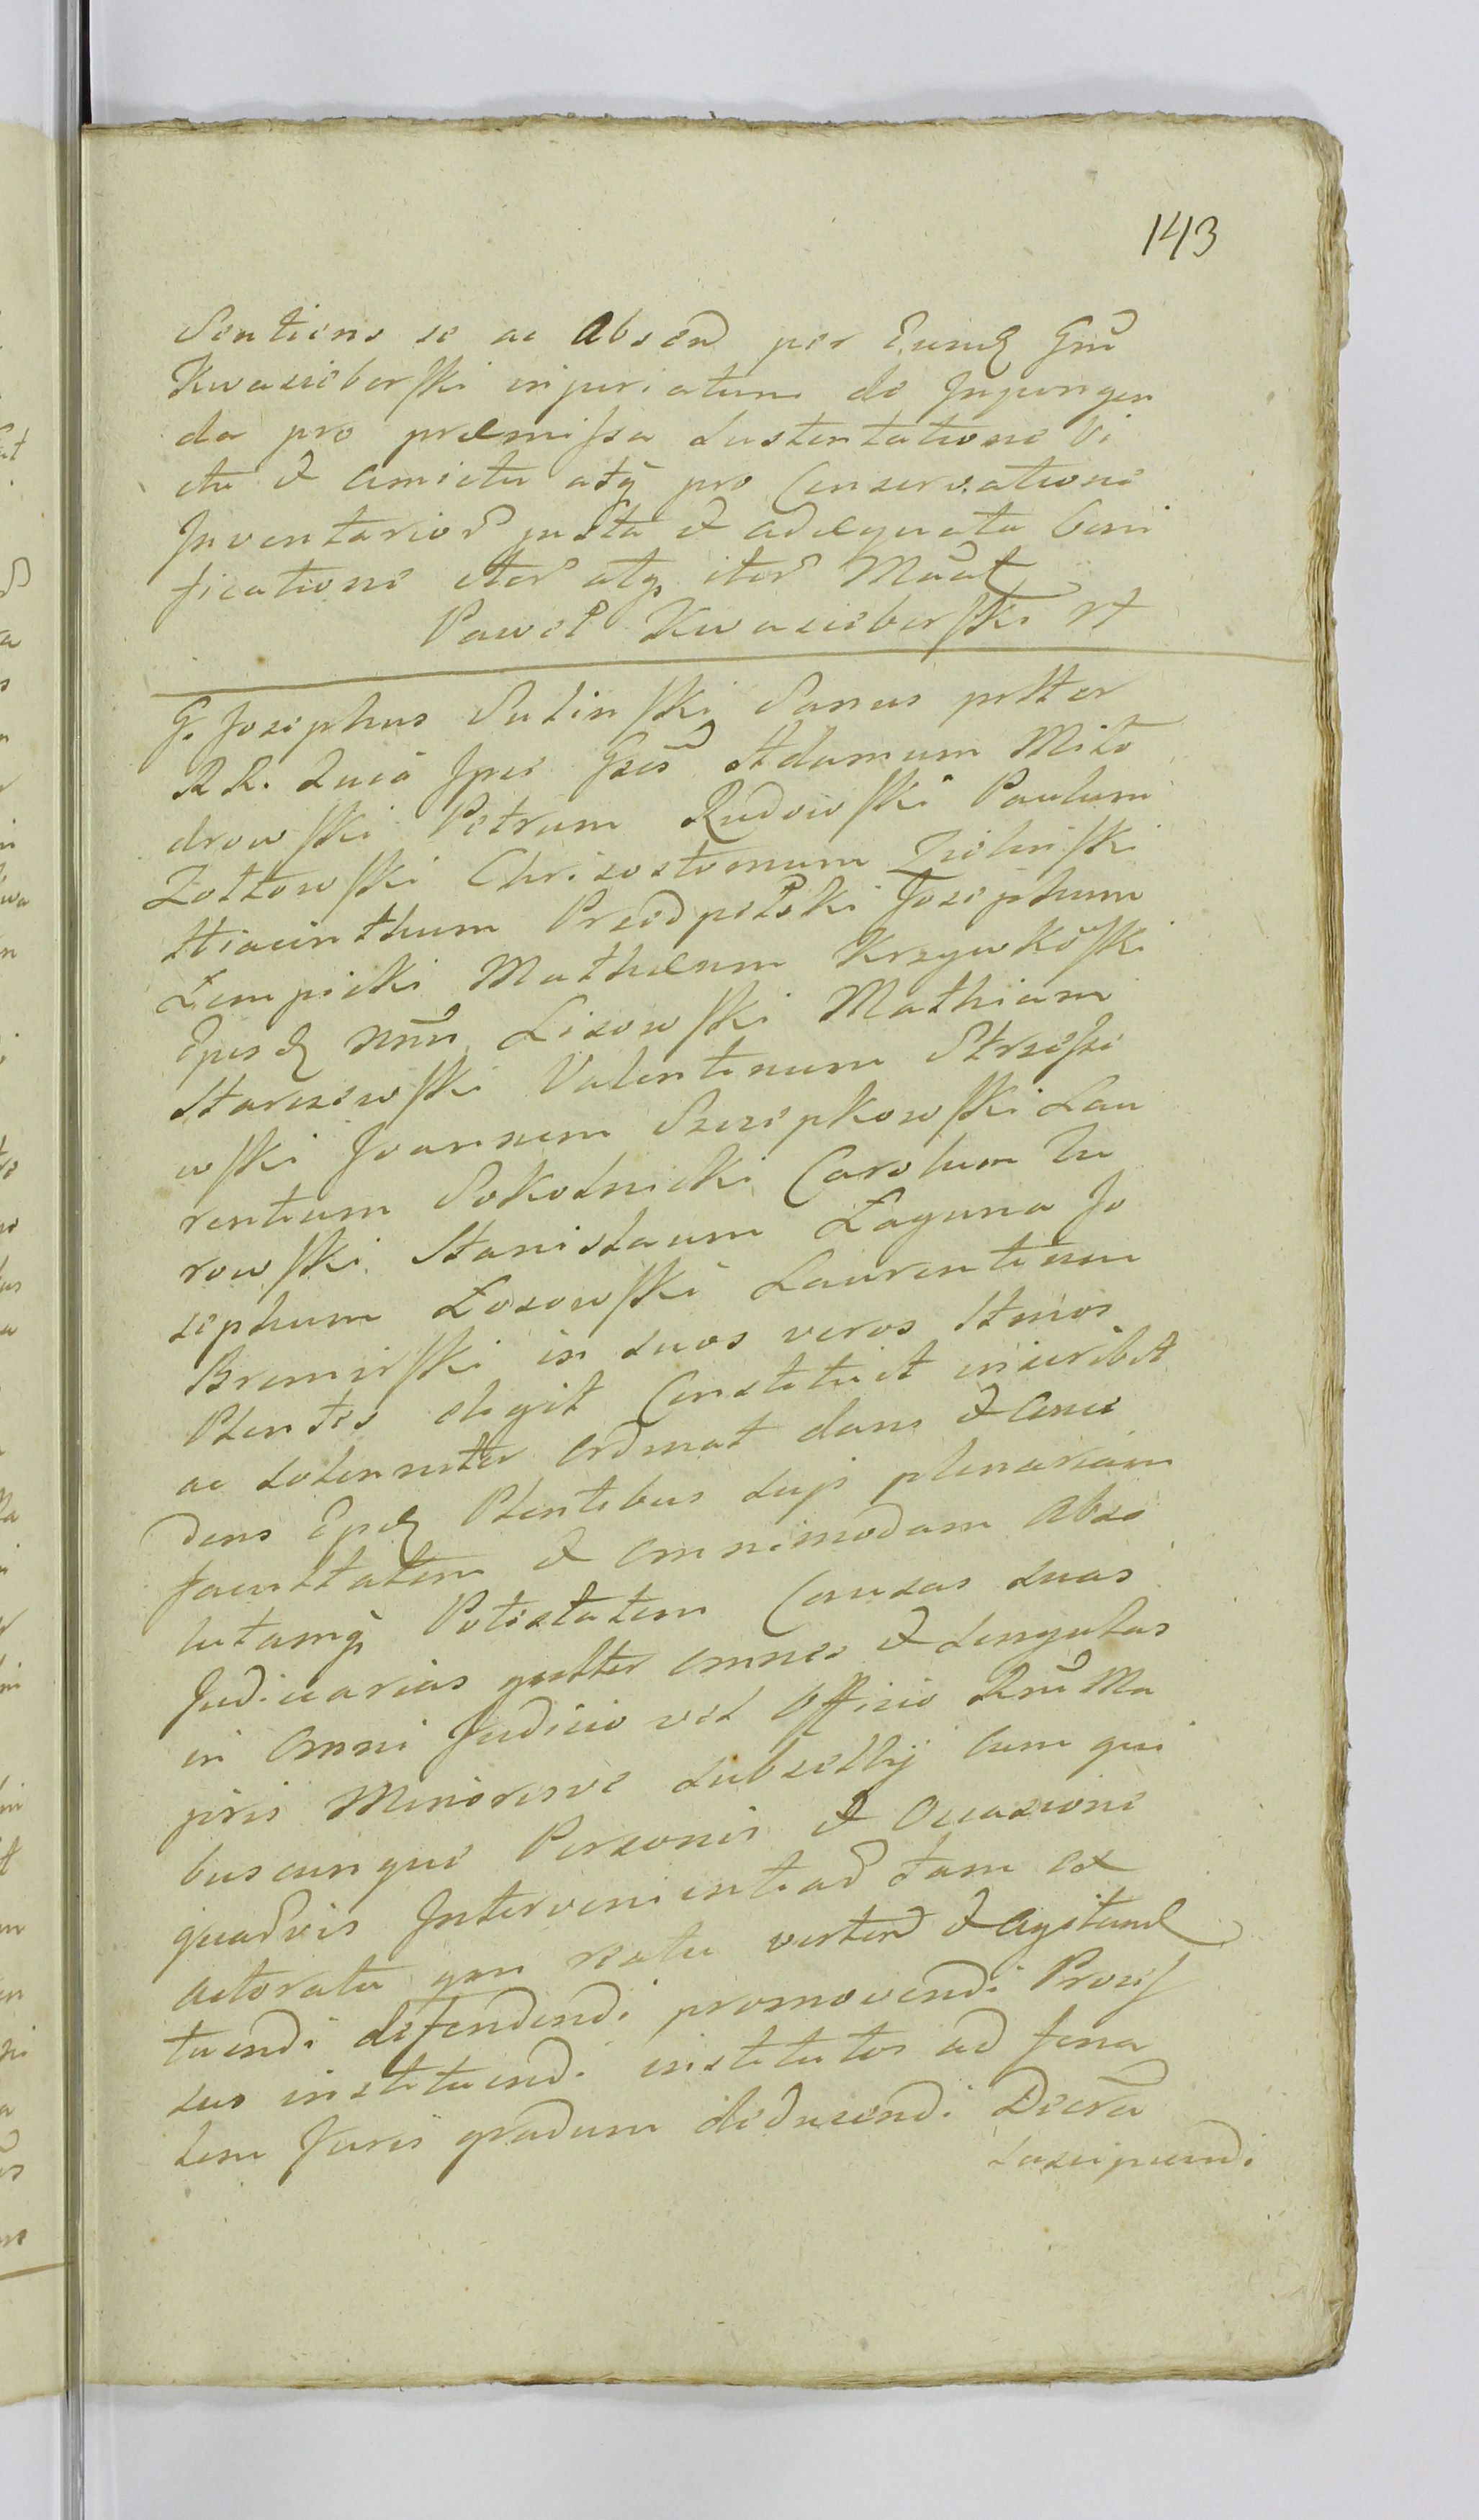 143
Sentiens se ac Absen per Eund Gnu
Kwasieborski injuriatum de Injungen
da pro præmissa sustentatione Vi
ctu & Amictu atq pro Conservatione
Inventarior justa & adæquata boni
ficatione iter atq iter Maat
Paweł Kwasieborski
G. Josephus Suliński Sanus
R R. Quia Adamum Mło
drowski Petrum Rudowski Paulum
Żółtowski Chrisostomum Zieliński
Hiacinthum Przedpełski Josephum
Łempicki Mathæum Krzywkoski
Lisowski Mathiam
Starczewski Valentinum Strzesze
wski Joannem Szczepkowski Lau
rentium Sokolnicki Carolum Tu
rowski Stanislaum Łaguna Jo
sephum Łosowski Laurentium
in suos veros
Plentes elegit Constituit inscribit
ac solenniter ordinat dans & Conce
dens Plentibus suis plenariam
facultatem & omnimodam Abso
lutamq Potestatem Causas suas
Judiciarias omnes & singulas
in Omni Judicio vel Officio Rni Ma
joris Minorisve subsellij cum qui
buscunque Personis & Occasione
quadvis Intervenientiad tam ex
actoratu qm reatu verten & Agitand
tuendi defendendi promovendi Proces
sus instituendi institutos ad fina
lem Juris gradum deducendi Decra
suscipiendi